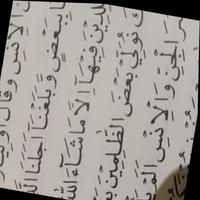 الْإِنْسِ وَقَالَ
بِبَعْضٍ وَّبَلَغْنَا أَجَلَنَا
فِيْهَا إِلَّا مَا شَاءَ اللّٰهُ
نُوَلِّيْ بَعْضَ الظّٰلِمِيْنَ
الْجِنِّ وَالْإِنْسِ